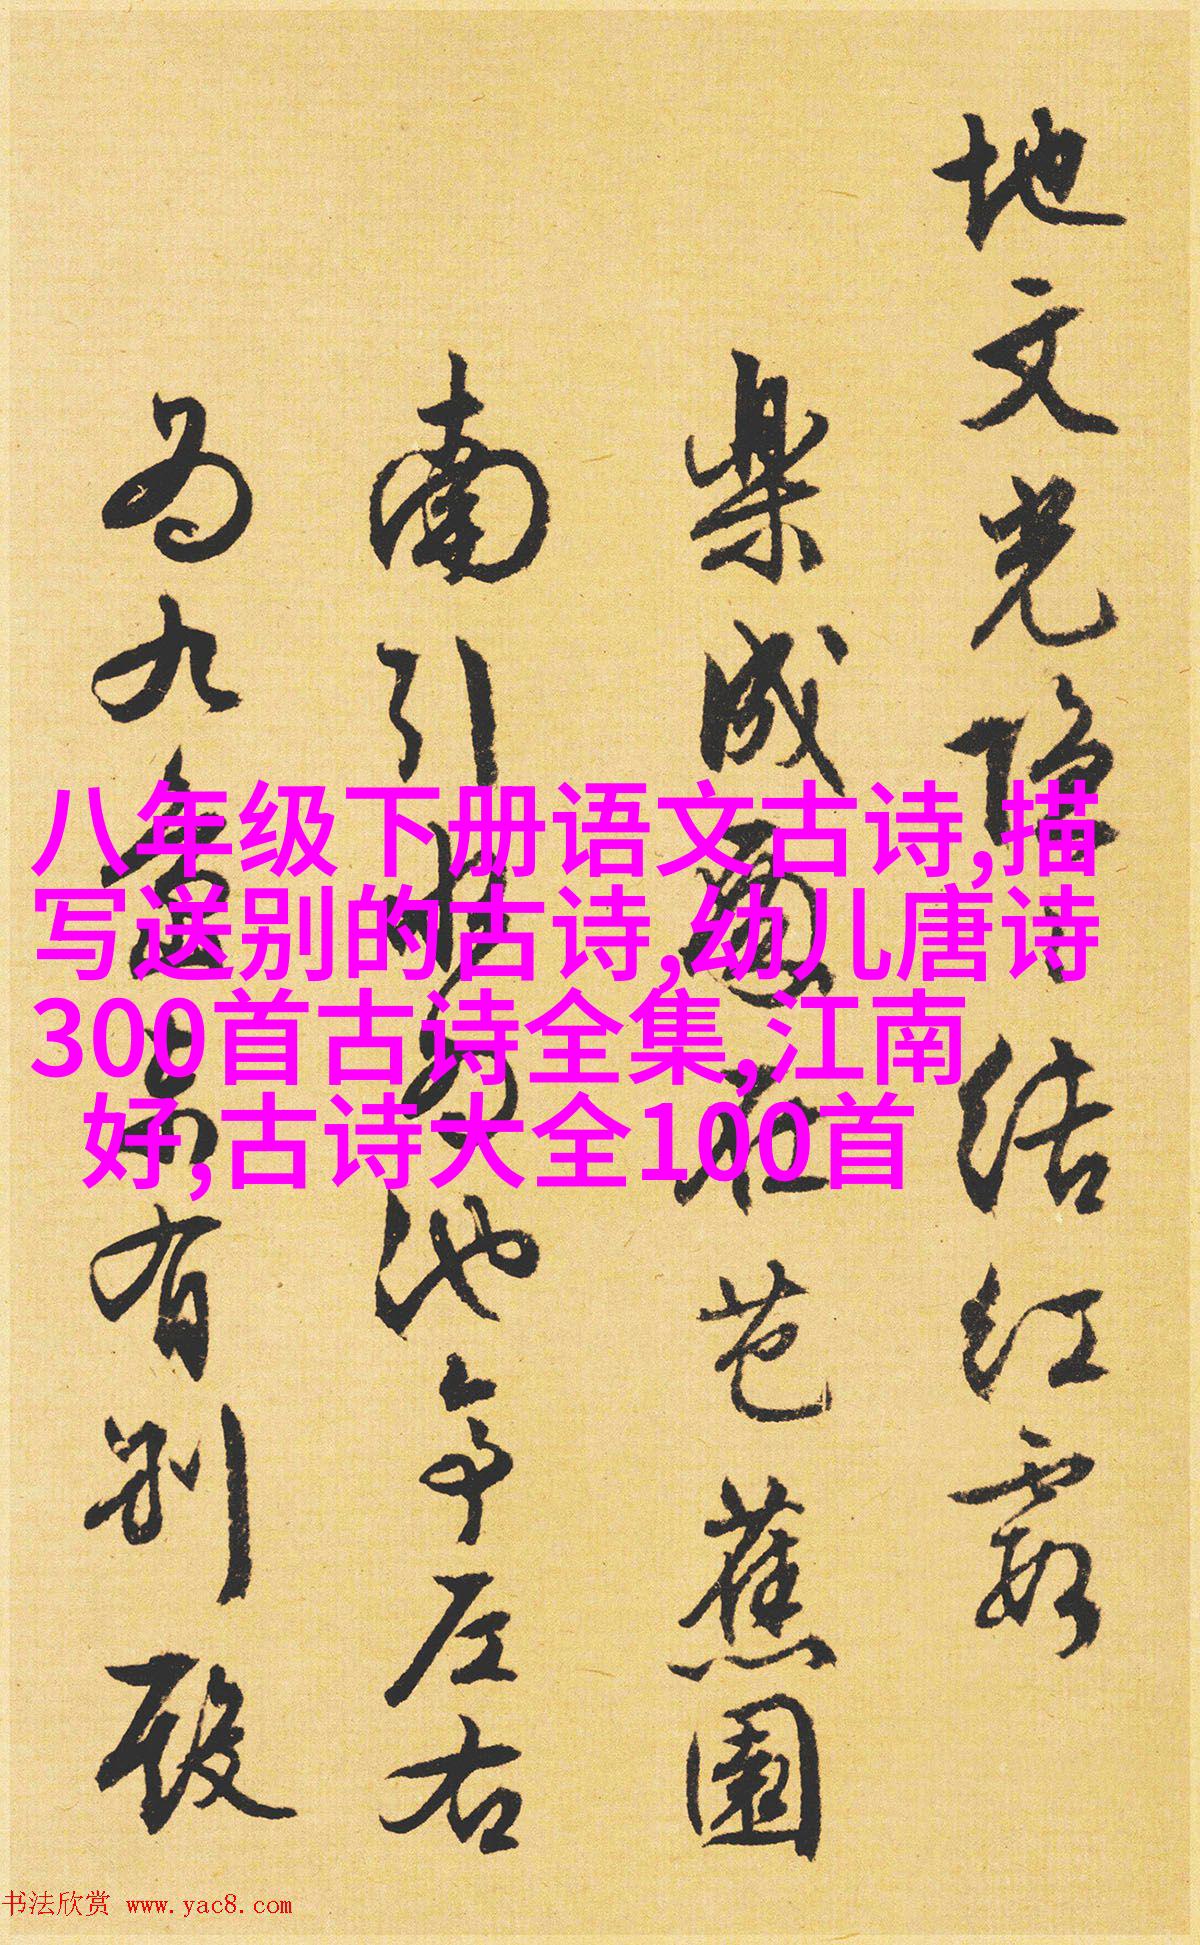 地文光隐
结红霞
樂成
在芭蕉園
南引
池亭左右
为九
有别殿
八年级下册语文古诗,描
写送别的古诗,幼儿唐诗
300首古诗全集,江南
好,古诗大全100首
书法欣赏 www.yac8.com